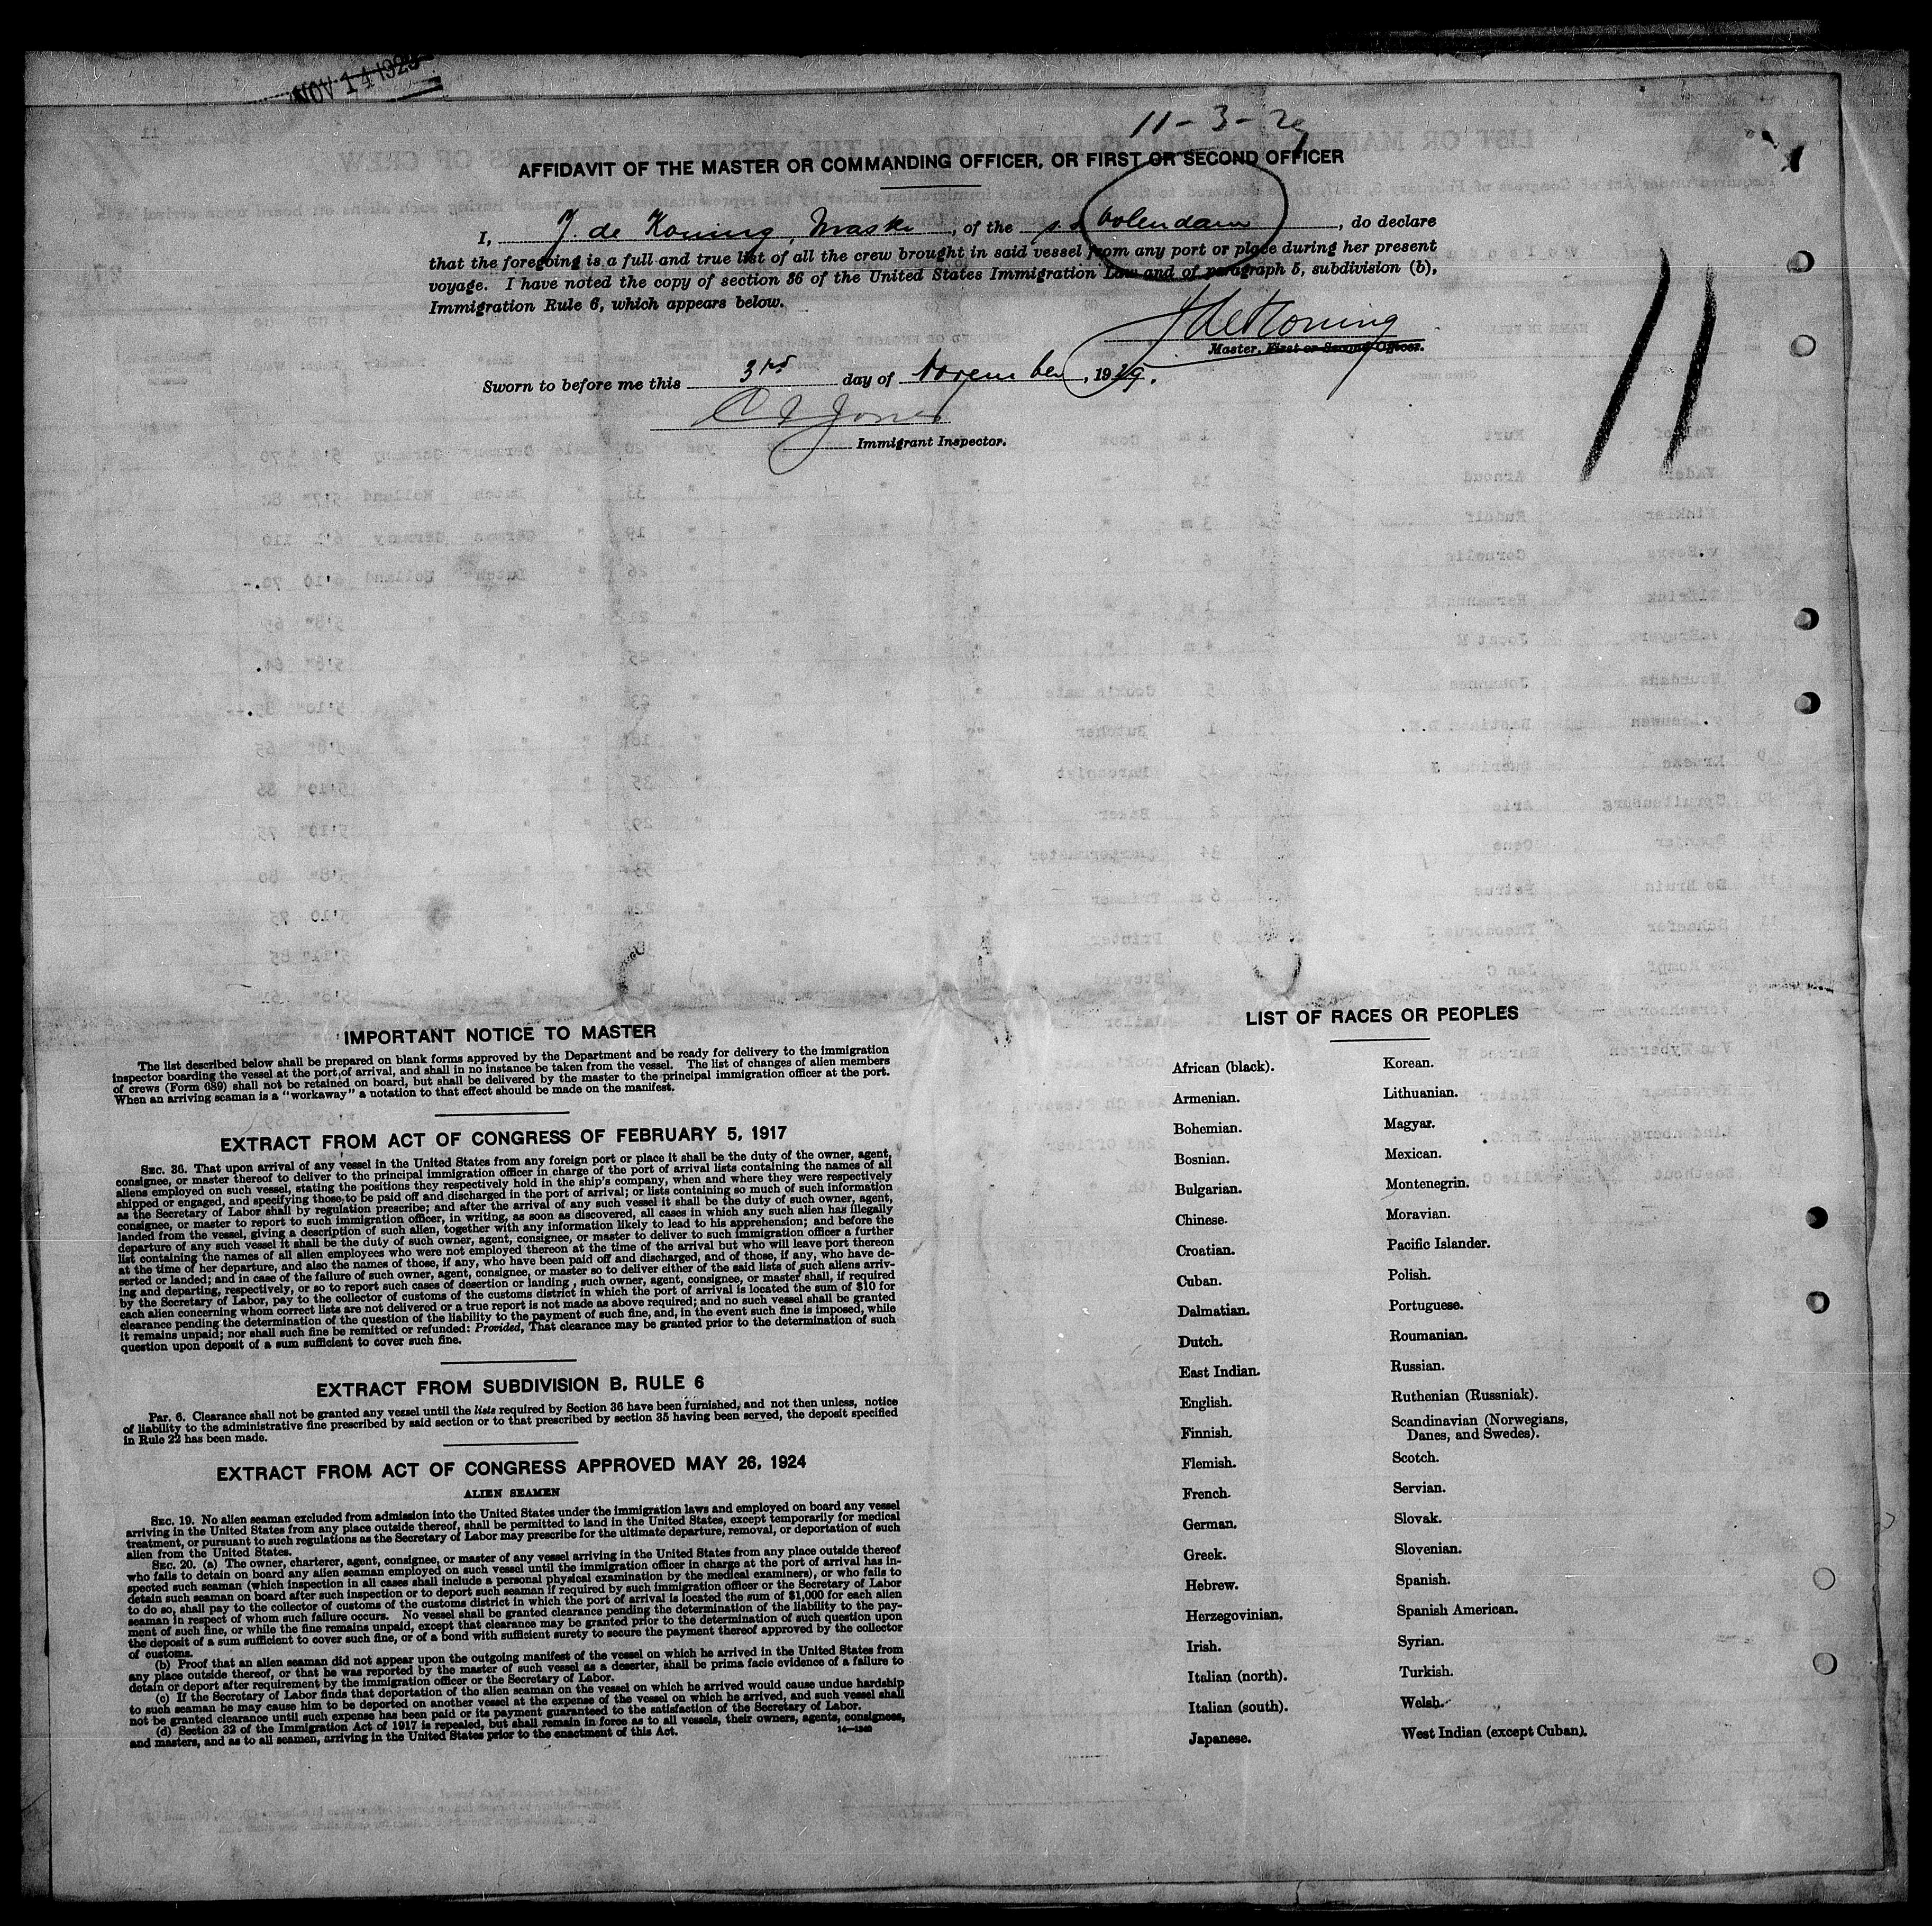 NOV 14 1929
11-3-29
AFFIDAVIT OF THE MASTER OR COMMANDING OFFICER, OR FIRST OR SECOND OFFICER
I, J. de Koning, Master, of the s.s. Volendam, do declare
that the foregoing is a full and true list of all the crew brought in said vessel from any port or place during her present
voyage. I have noted the copy of section 36 of the United States Immigration Law and of paragraph 5, subdivision (b),
Immigration Rule 6, which appears below.
J de Koning
Master, First or Second Officer.
Sworn to before me this 3rd day of November, 1929.
Jones
Immigrant Inspector.
11
IMPORTANT NOTICE TO MASTER
The list described below shall be prepared on blank forms approved by the Department and be ready for delivery to the immigration
inspector boarding the vessel at the port of arrival, and shall in no instance be taken from the vessel. The list of changes of alien members
of crews (Form 689) shall not be retained on board, but shall be delivered by the master to the principal immigration officer at the port.
When an arriving seaman is a "workaway" a notation to that effect should be made on the manifest.
EXTRACT FROM ACT OF CONGRESS OF FEBRUARY 5, 1917
SEC. 36. That upon arrival of any vessel in the United States from any foreign port or place it shall be the duty of the owner, agent,
consignee, or master thereof to deliver to the principal immigration officer in charge of the port of arrival lists containing the names of all
aliens employed on such vessel, stating the positions they respectively hold in the ship's company, when and where they were respectively
shipped or engaged, and specifying those to be paid off and discharged in the port of arrival; or lists containing so much of such information
as the Secretary of Labor shall by regulation prescribe; and after the arrival of any such vessel it shall be the duty of such owner, agent,
consignee, or master to report to such immigration officer, in writing, as soon as discovered, all cases in which any such alien has illegally
landed from the vessel, giving a description of such alien, together with any information likely to lead to his apprehension; and before the
departure of any such vessel it shall be the duty of such owner, agent, consignee, or master to deliver to such immigration officer a further
list containing the names of all alien employees who were not employed thereon at the time of the arrival but who will leave port thereon
at the time of her departure, and also the names of those, if any, who have been paid off and discharged, and of those, if any, who have de-
serted or landed; and in case of the failure of such owner, agent, consignee, or master so to deliver either of the said lists of such aliens arriv-
ing and departing, respectively, or so to report such cases of desertion or landing, such owner, agent, consignee, or master shall, if required
by the Secretary of Labor, pay to the collector of customs of the customs district in which the port of arrival is located the sum of $10 for
each alien concerning whom correct lists are not delivered or a true report is not made as above required; and no such vessel shall be granted
clearance pending the determination of the question of the liability to the payment of such fine, and, in the event such fine is imposed, while
it remains unpaid; nor shall such fine be remitted or refunded: Provided, That clearance may be granted prior to the determination of such
question upon deposit of a sum sufficient to cover such fine.
EXTRACT FROM SUBDIVISION B, RULE 6
Par. 6. Clearance shall not be granted any vessel until the lists required by Section 36 have been furnished, and not then unless, notice
of liability to the administrative fine prescribed by said section or to that prescribed by section 35 having been served, the deposit specified
in Rule 22 has been made.
EXTRACT FROM ACT OF CONGRESS APPROVED MAY 26, 1924
ALIEN SEAMEN
SEC. 19. No alien seaman excluded from admission into the United States under the immigration laws and employed on board any vessel
arriving in the United States from any place outside thereof, shall be permitted to land in the United States, except temporarily for medical
treatment, or pursuant to such regulations as the Secretary of Labor may prescribe for the ultimate departure, removal, or deportation of such
alien from the United States.
SEC. 20. (a) The owner, charterer, agent, consignee, or master of any vessel arriving in the United States from any place outside thereof
who fails to detain on board any alien seaman employed on such vessel until the immigration officer in charge at the port of arrival has in-
spected such seaman (which inspection in all cases shall include a personal physical examination by the medical examiners), or who fails to
detain such seaman on board after such inspection or to deport such seaman if required by such immigration officer or the Secretary of Labor
to do so, shall pay to the collector of customs of the customs district in which the port of arrival is located the sum of $1,000 for each alien
seaman in respect of whom such failure occurs. No vessel shall be granted clearance pending the determination of the liability to the pay-
ment of such fine, or while the fine remains unpaid, except that clearance may be granted prior to the determination of such question upon
the deposit of a sum sufficient to cover such fine, or of a bond with sufficient surety to secure the payment thereof approved by the collector
of customs.
(b) Proof that an alien seaman did not appear upon the outgoing manifest of the vessel on which he arrived in the United States from
any place outside thereof, or that he was reported by the master of such vessel as a deserter, shall be prima facie evidence of a failure to
detain or deport after requirement by the immigration officer or the Secretary of Labor.
(c) If the Secretary of Labor finds that deportation of the alien seaman on the vessel on which he arrived would cause undue hardship
to such seaman he may cause him to be deported on another vessel at the expense of the vessel on which he arrived, and such vessel shall
not be granted clearance until such expense has been paid or its payment guaranteed to the satisfaction of the Secretary of Labor.
(d) Section 32 of the Immigration Act of 1917 is repealed, but shall remain in force as to all vessels, their owners, agents, consignees,
and masters, and as to all seamen, arriving in the United States prior to the enactment of this Act.
14—1240
LIST OF RACES OR PEOPLES
African (black).
Armenian.
Bohemian.
Bosnian.
Bulgarian.
Chinese.
Croatian.
Cuban.
Dalmatian.
Dutch.
East Indian.
English.
Finnish.
Flemish.
French.
German.
Greek.
Hebrew.
Herzegovinian.
Irish.
Italian (north).
Italian (south).
Japanese.
Korean.
Lithuanian.
Magyar.
Mexican.
Montenegrin.
Moravian.
Pacific Islander.
Polish.
Portuguese.
Roumanian.
Russian.
Ruthenian (Russniak).
Scandinavian (Norwegians,
Danes, and Swedes).
Scotch.
Servian.
Slovak.
Slovenian.
Spanish.
Spanish American.
Syrian.
Turkish.
Welsh.
West Indian (except Cuban).